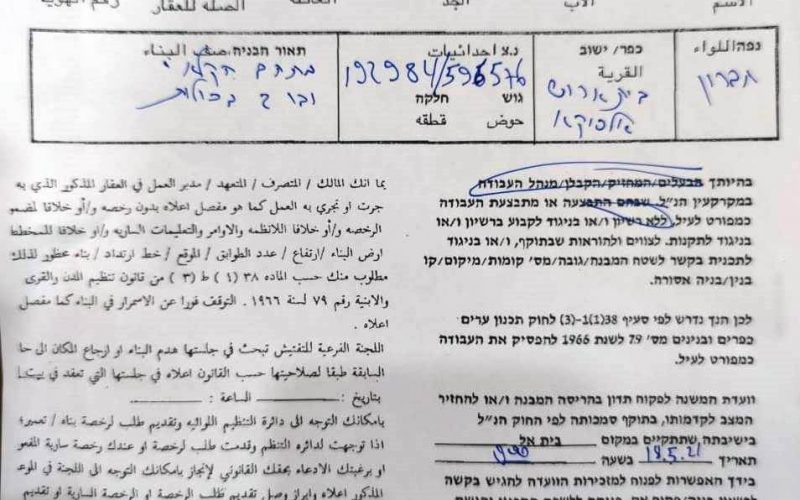 الاسم الاب الجد العائلة الصله للعقار رقم الهوية
נפה اللواء
חברון
כפר/ ישוב
القرية
בית
נ.צ احداثيات
192984/595576
גוש חלקה
حوض قطقه
תאור הבניה وصف البناء
מתחם חקלאי
בהיותך הבעלים/המחזיק/הקבלן/מנהל העבודה
במקרקעין הנ"ל, שבהם התבצעה או מתבצעת העבודה
כמפורט לעיל, ללא רשיון ו/או בניגוד לקבוע ברשיון ו/או
בניגוד לתקנות. לצווים ולהוראות שבתוקף, ו/או בניגוד
לתכנית בקשר לשטח המבנה/גובה/מס' קומות/מיקום/קו
בנין/בניה אסורה.
לכן הנך נדרש לפי סעיף 38(1)(ו-3) לחוק תכנון ערים
כפרים ובנינים מס' 79 לשנת 1966 להפסיק את העבודה
כמפורט לעיל.
וועדת המשנה לפקוח תדון בהריסה המבנה ו/או להחזיר
המצב לקדמותו, בתוקף סמכותה לפי החוק הנ"ל
בישיבתה, שתתקיים במקום בית אל
תאריך 18.5.21 בשעה
בידך האפשרות לפנות למזכירות הוועדה להגיש בקשה
بما انك المالك / المتصرف / المتعهد / مدير العمل في العقار المذكور الذي به
جرت او تجري به العمل كما هو مفصل اعلاه بدون رخصه و/أو خلافا لمضمو
الرخصه و/أو خلافا اللانظمه والاوامر والتعليمات الساريه و/او خلافا للمخطط
ارض البناء /ارتفاع / عدد الطوابق / الموقع / خط ارتداد / بناء محظور لذلك
مطلوب منك حسب الماده ٣٨ (١) ط (٣) من قانون تنظيم المدن والقرى
والابنية رقم ٧٩ لسنة ١٩٦٦. التوقف فورا عن الاسمرار في البناء كما مفصل
اعلاه .
اللجنة الفرعية للتفتيش تبحث في جلستها هدم البناء او ارجاع المكان الى حا
السابقة طبقا لصلاحيتها حسب القانون اعلاه في جلستها التي تعقد في بيت ا
بتاريخ : الساعة :
بامكانك التوجه الى دائرة التنظيم اللوائيه وتقديم طلب لرخصة بناء / تعمير؛
اذا توجهت لدائره التنظم وقدمت طلب لرخصة او عندك رخصة سارية المفعو
او برغبتك الادعاء بحقك القانوني لإنجاز بامكانك التوجه الى اللجنة في الموعد
المذكور اعلاه وابراز وصل تقديم طلب الرخصة او الرخصة السارية او تقديم